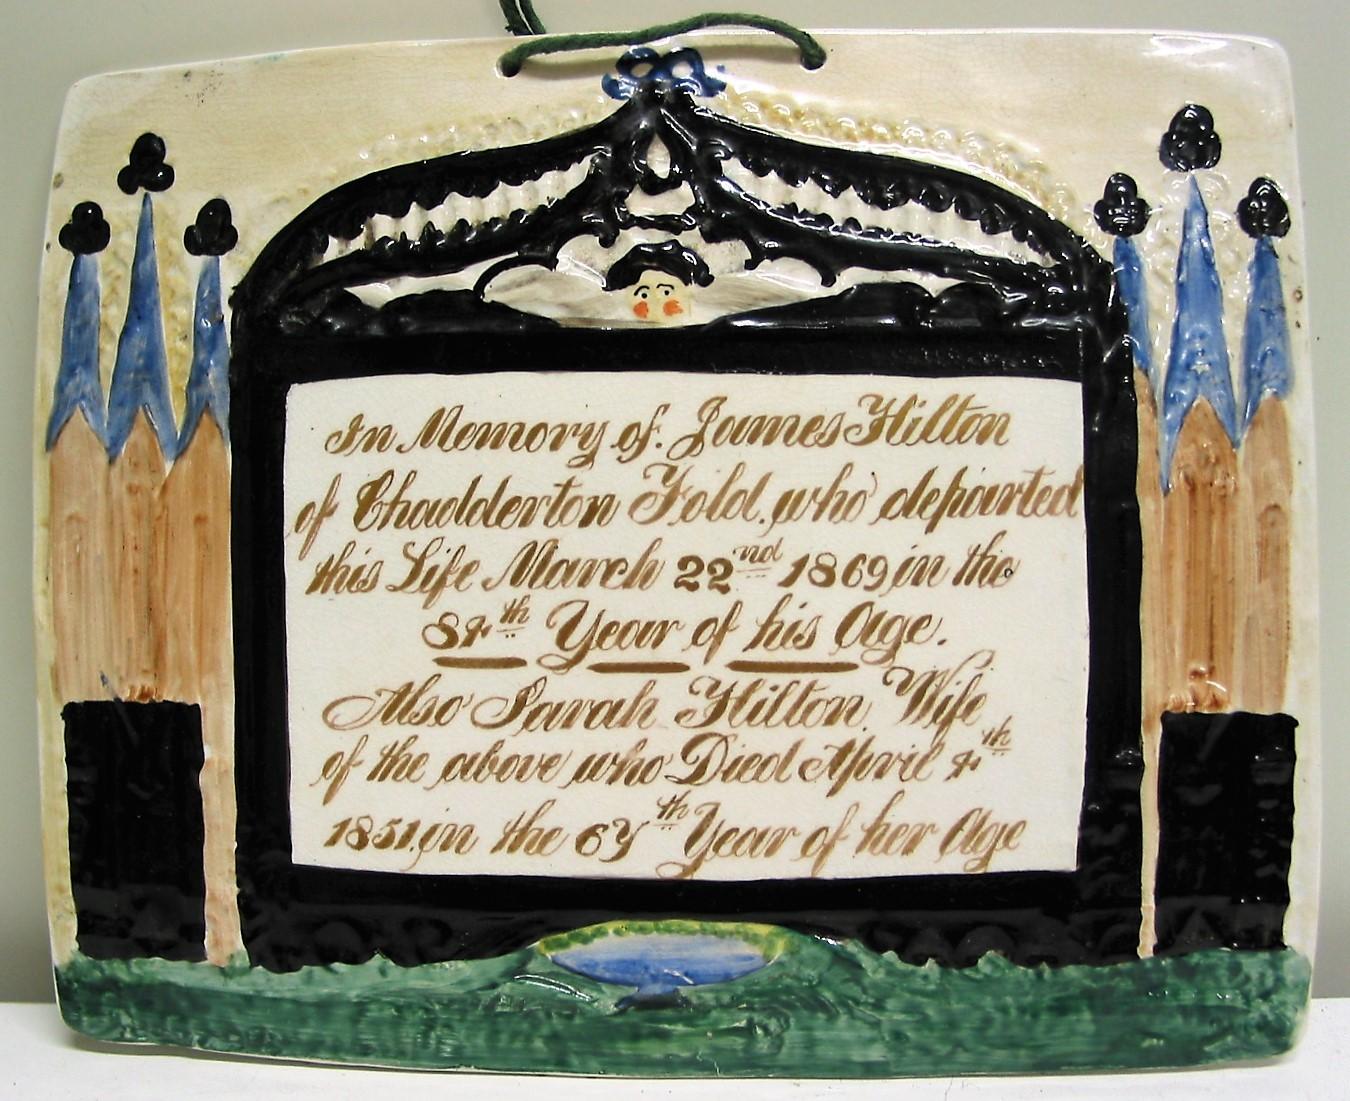 In Memory of. James Hilton
of Chadderton Fold. who departed
this Life March 22nd 1869 in the
84th Year of his Age.
Also Sarah Hilton Wife
of the above who Died April 4th
1851. in the th Year of her Age